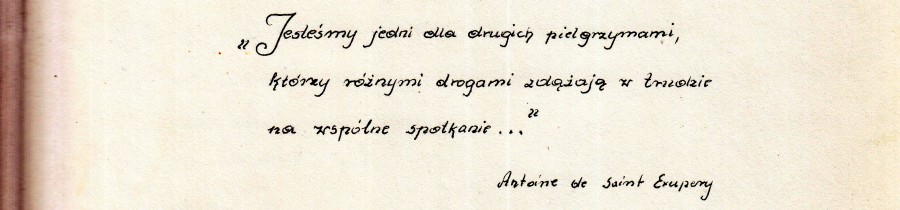 „Jesteśmy jedni dla drugich pielgrzymami,
którzy różnymi drogami zdążają w trudzie
na wspólne spotkanie..."
Antoine de Saint Exupery